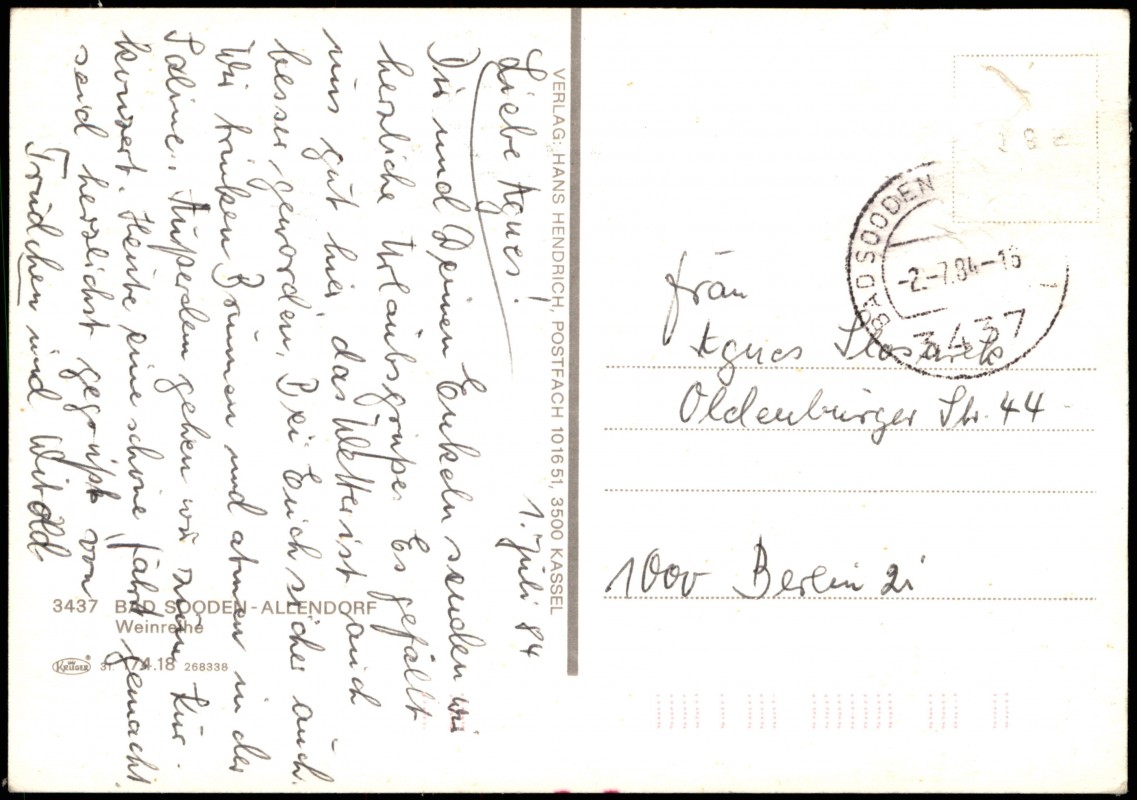 1. Juli 84
Liebe Agnes!
Dir und Deinen Enkeln senden wir
herzliche Urlaubsgrüße. Es gefällt
uns gut hier, das Wetter ist auch
besser geworden. Bei Euch sicher auch.
Wir trinken Brunnen und atmen in der
Saline. Außerdem gehen wir zum Kur-
konzert. Heute eine schöne Fahrt gemacht
seid herzlichst gegrüßt von
Trudchen und Witold
3437 BAD SOODEN-ALLENDORF
Weinreihe
KRÜGER 31 174.18 268338
VERLAG: HANS HENDRICH, POSTFACH 101651, 3500 KASSEL
BAD SOODEN
-2.-7.84-16
3437
Frau
Agnes
Oldenburger Str. 44
1000 Berlin 21